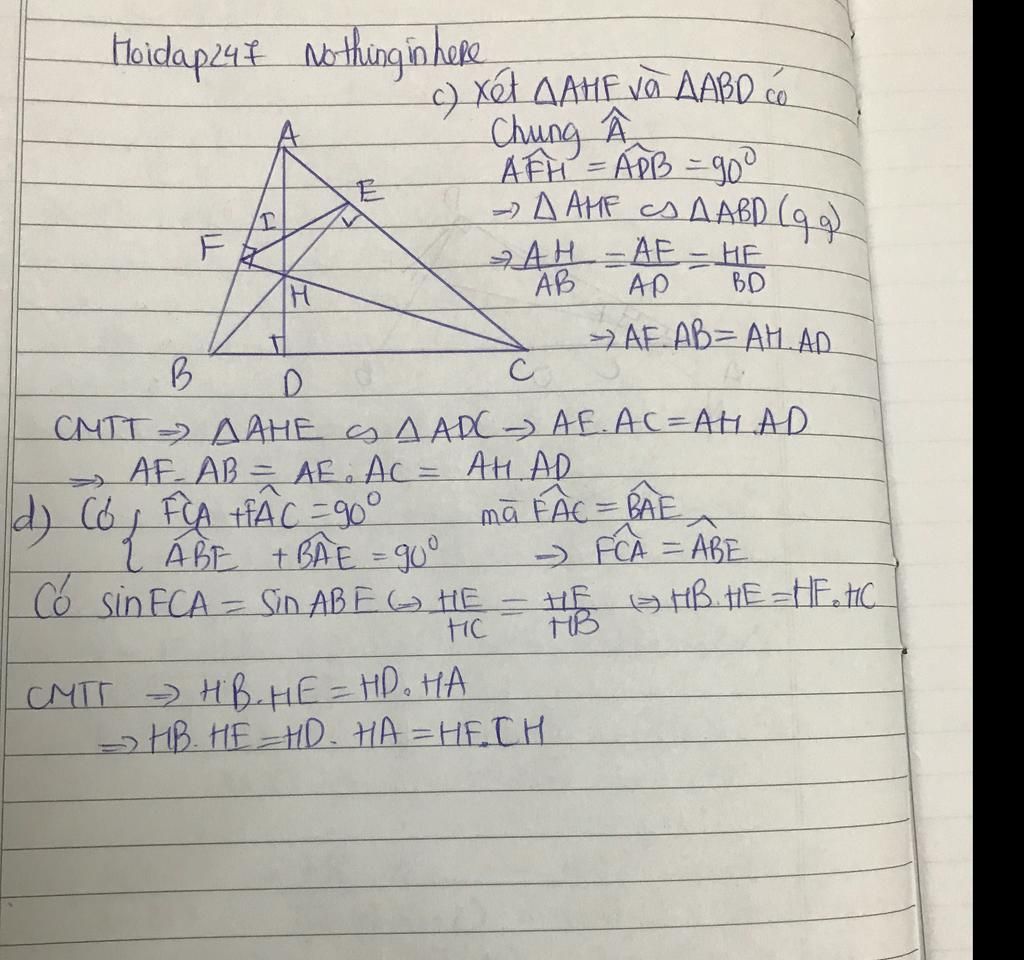 Hoidap247 Nothinginhere
c) Xét ΔAHF và ΔABD có
Chung Â
AF̂H = AD̂B = 90⁰
⇒ ΔAHF ∽ ΔABD (g.g)
⇒ AH/AB = AF/AD = HF/BD
⇒ AF.AB = AH.AD
A
E
I
F
H
B
D
C
CMTT ⇒ ΔAHE ∽ ΔADC ⇒ AE.AC = AH.AD
⇒ AF.AB = AE.AC = AH.AD
d) Có { FĈA + FÂC = 90⁰ mà FÂC = BÂE
AB̂E + BÂE = 90⁰ ⇒ FĈA = AB̂E
Có sin FCA = sin ABE ⇔ HE/HC = HF/HB ⇔ HB.HE = HF.HC
CMTT ⇒ HB.HE = HD.HA
⇒ HB.HE = HD.HA = HF.CH